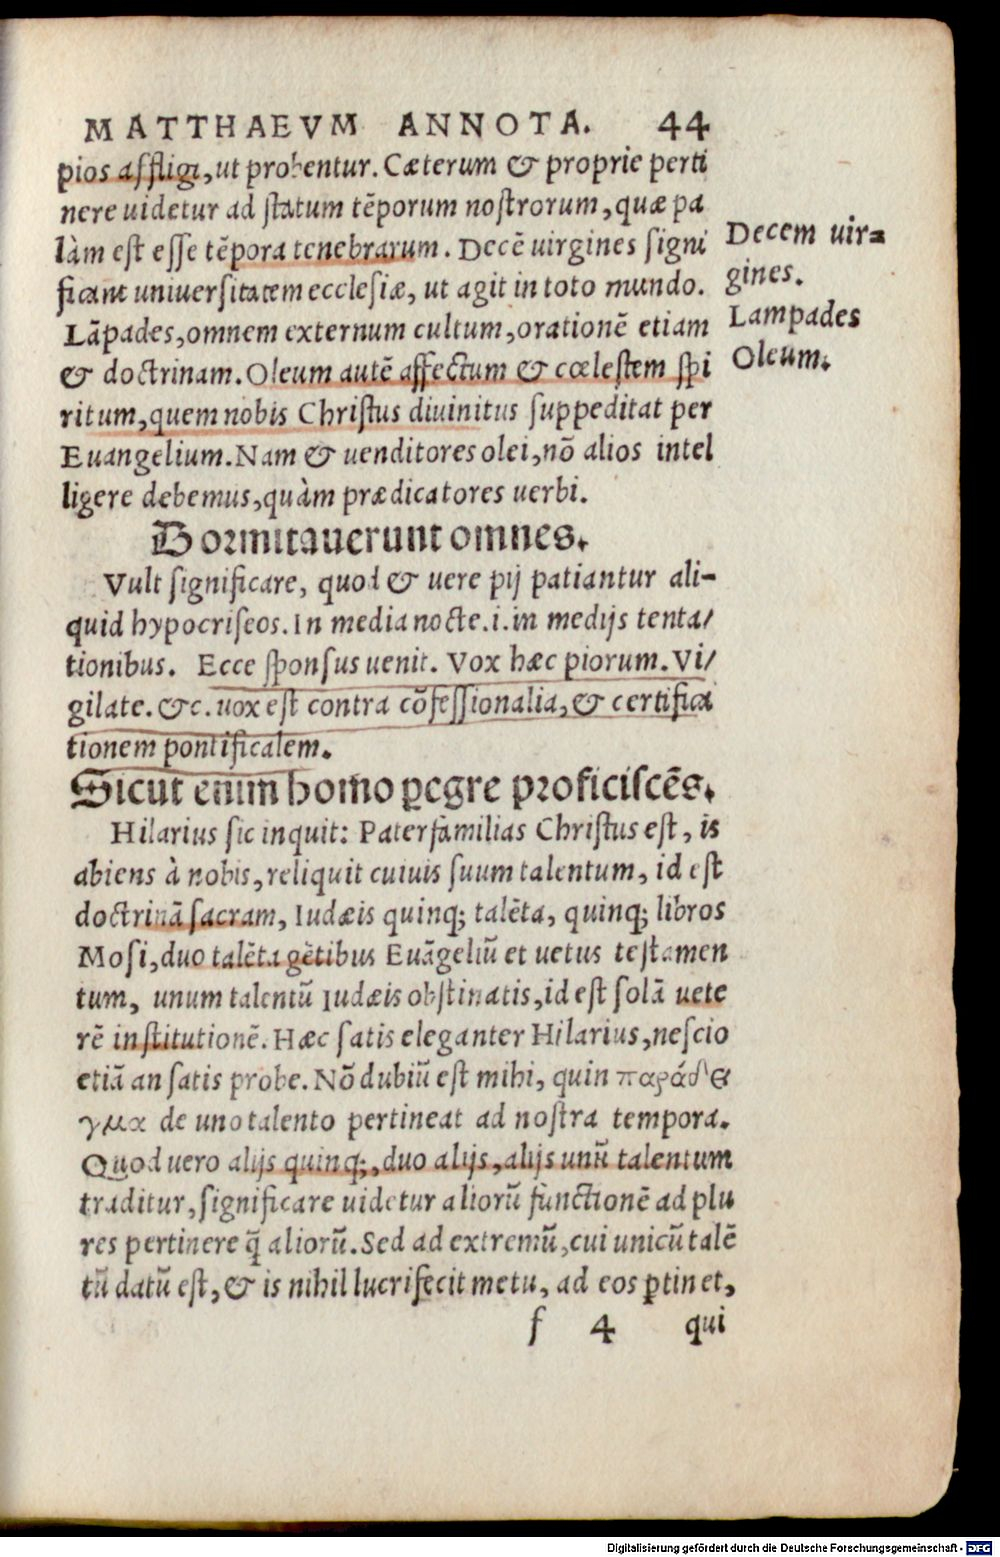 MATTHAEVM ANNOTA. 44
pios affligi, ut probentur. Cæterum & proprie perti
nere uidetur ad statum tẽporum nostrorum, quæ pa
làm est esse tẽpora tenebrarum. Decẽ uirgines signi
ficant uniuersitatem ecclesiæ, ut agit in toto mundo.
Lãpades, omnem externum cultum, orationẽ etiam
& doctrinam. Oleum autẽ affectum & cœlestem spi
ritum, quem nobis Christus diuinitus suppeditat per
Euangelium. Nam & uenditores olei, nõ alios intel
ligere debemus, quàm prædicatores uerbi.
Decem uir=
gines.
Lampades
Oleum.
Dormitauerunt omnes.
Vult significare, quod & uere pij patiantur ali-
quid hypocriseos. In media nocte .i. in medijs tenta/
tionibus. Ecce sponsus uenit. Vox hæc piorum. Vi/
gilate. &c. uox est contra cõfessionalia, & certifica
tionem pontificalem.
Sicut enim homo ꝑegre proficiscẽs.
Hilarius sic inquit: Paterfamilias Christus est, is
abiens à nobis, reliquit cuiuis suum talentum, id est
doctrinã sacram, Iudæis quinq; talẽta, quinq; libros
Mosi, duo talẽta gẽtibus Euãgeliũ et uetus testamen
tum, unum talentũ Iudæis obstinatis, id est solã uete
rẽ institutionẽ. Hæc satis eleganter Hilarius, nescio
etiã an satis probe. Nõ dubiũ est mihi, quin παράδει
γμα de uno talento pertineat ad nostra tempora.
Quod uero alijs quinq;, duo alijs, alijs unũ talentum
traditur, significare uidetur aliorũ functionẽ ad plu
res pertinere q̃ aliorũ. Sed ad extremũ, cui unicũ talẽ
tũ datũ est, & is nihil lucrifecit metu, ad eos ꝑtinet,
f 4 qui
Digitalisierung gefördert durch die Deutsche Forschungsgemeinschaft - DFG